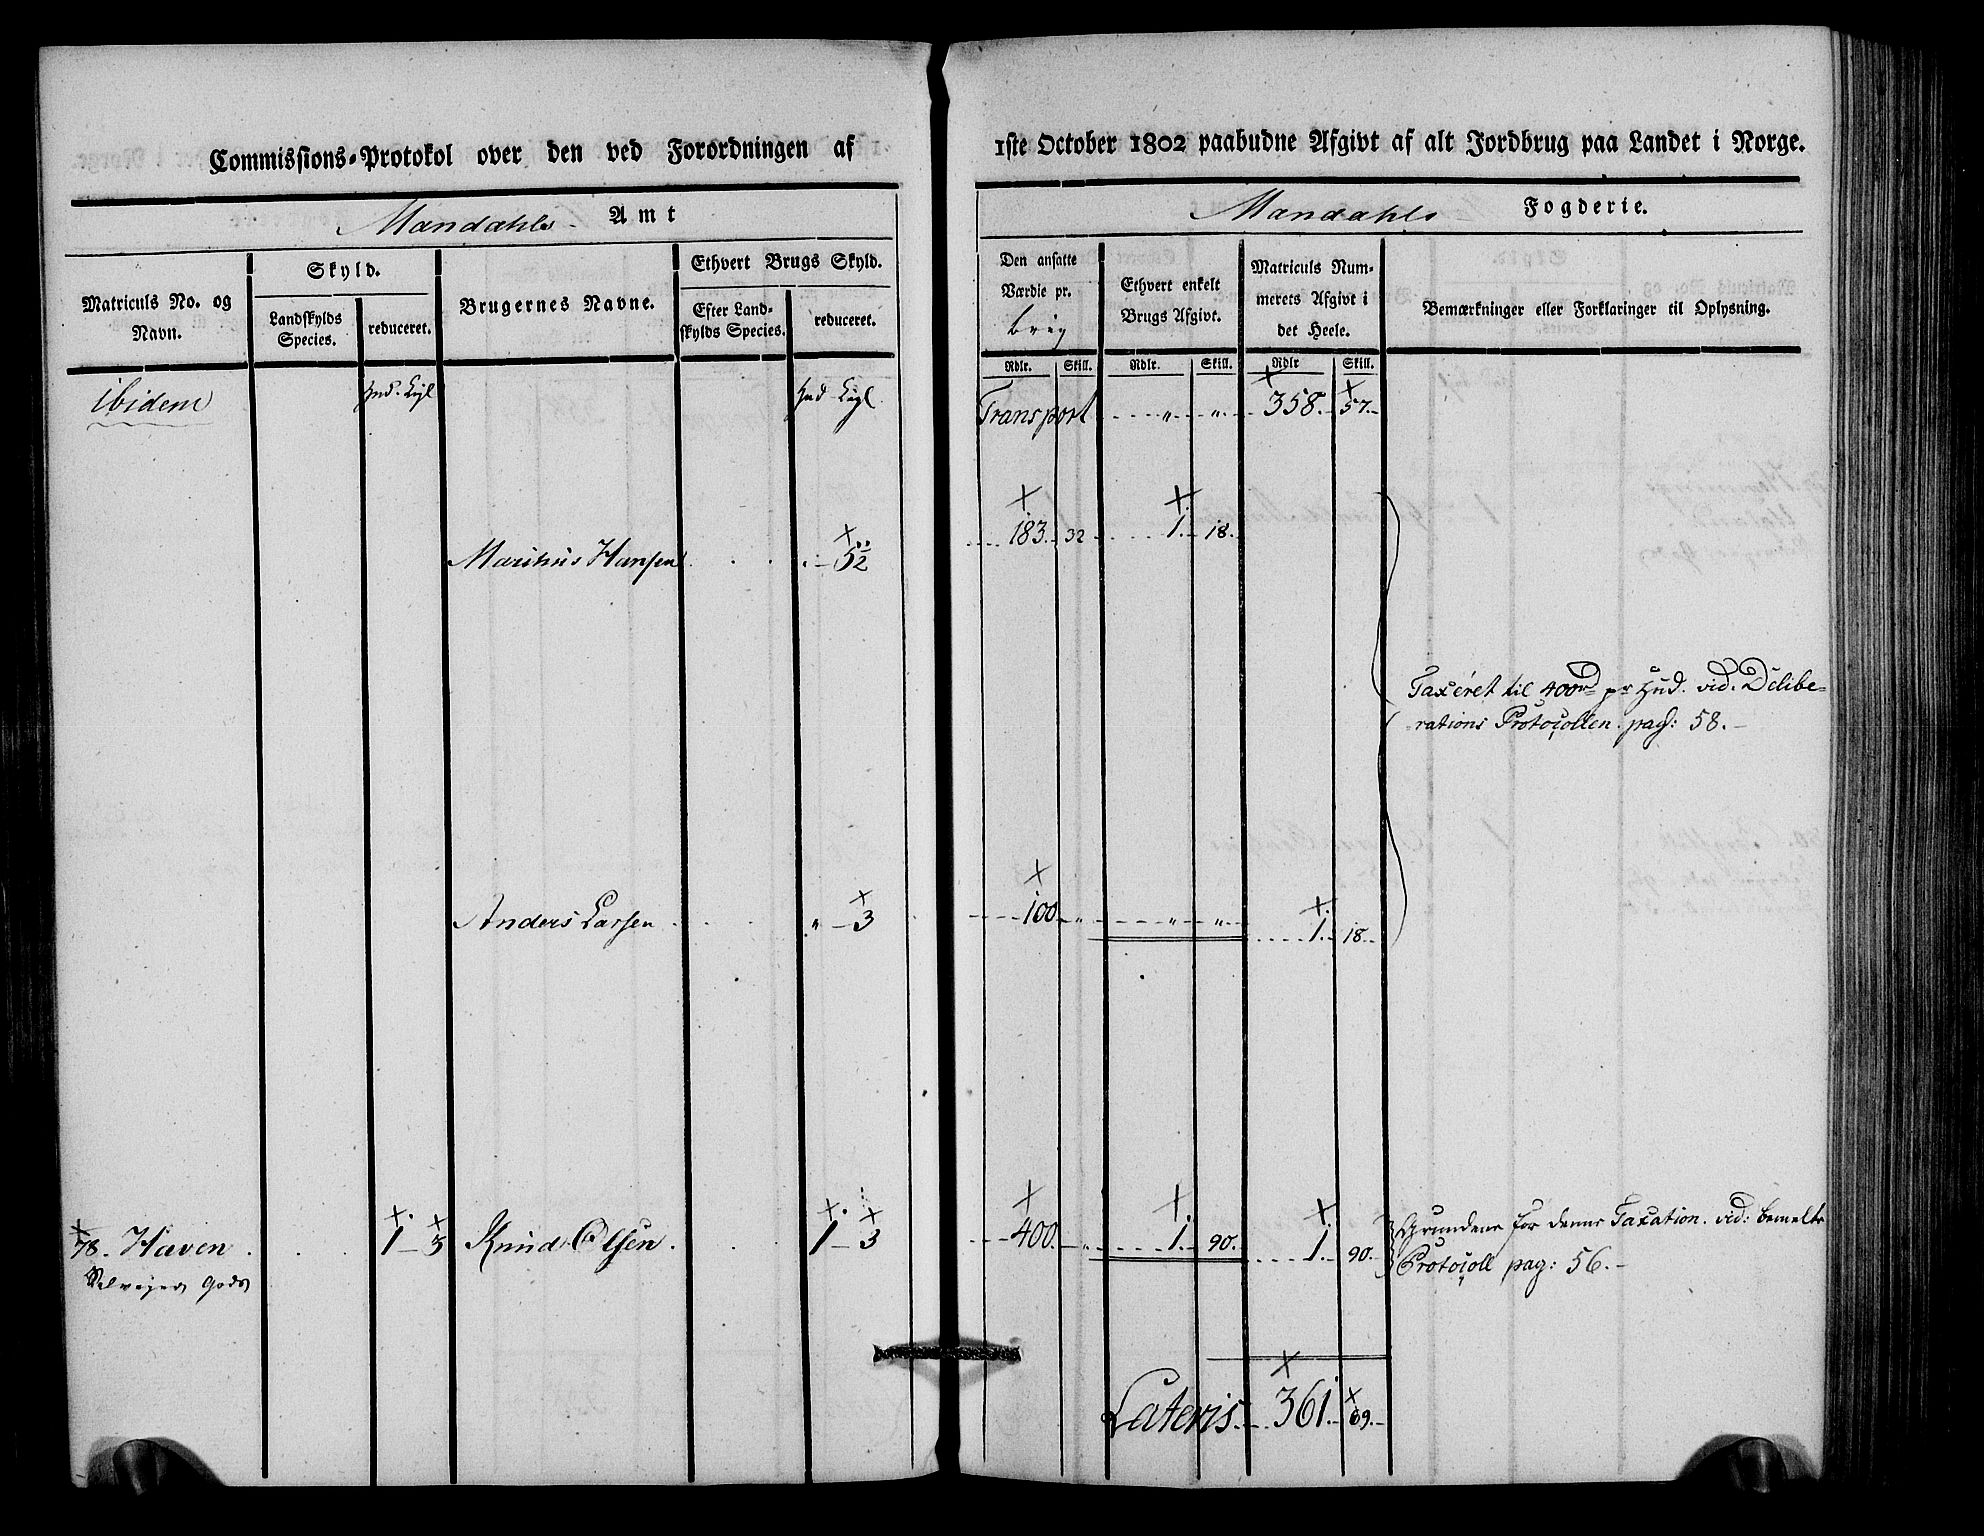 Commissions-Protokol over den ved Forordningen af
1ste October 1802 paabudne Afgivt af alt Jordbrug paa Landet i Norge.
Mandahls Amt
Mandahls Fogderie.
Matriculs No. og Navn.
Skyld.
Landskylds Species.
reduceret.
Brugernes Navne.
Ethvert Brugs Skyld.
Efter Landskylds Species.
reduceret.
Den ansatte Værdie pr.
Rdlr. Skill.
Ethvert enkelt Brugs Afgivt.
Rdlr. Skill.
Matriculs Nummerets Afgivt i det Heele.
Rdlr Skill.
Bemærkninger eller Forklaringer til Oplysning.
ibidem
Transport " " 358. 57.
Marthus Hansen 5½ 183. 32 1. 18.
Taxeret til 400rd pr Hud. vid. Delibe=
rations Protocollen. pag: 58.
Anders Larsen " 3 100 " " " 1. 18.
78. Haven 1 3 Knud Olsen 1 3 400. " 1. 90. 1. 90. Grundene for denne Taxation. vid: bemelte
Selveyer Gods
Protocoll pag: 56.
Lateris 361. 69.